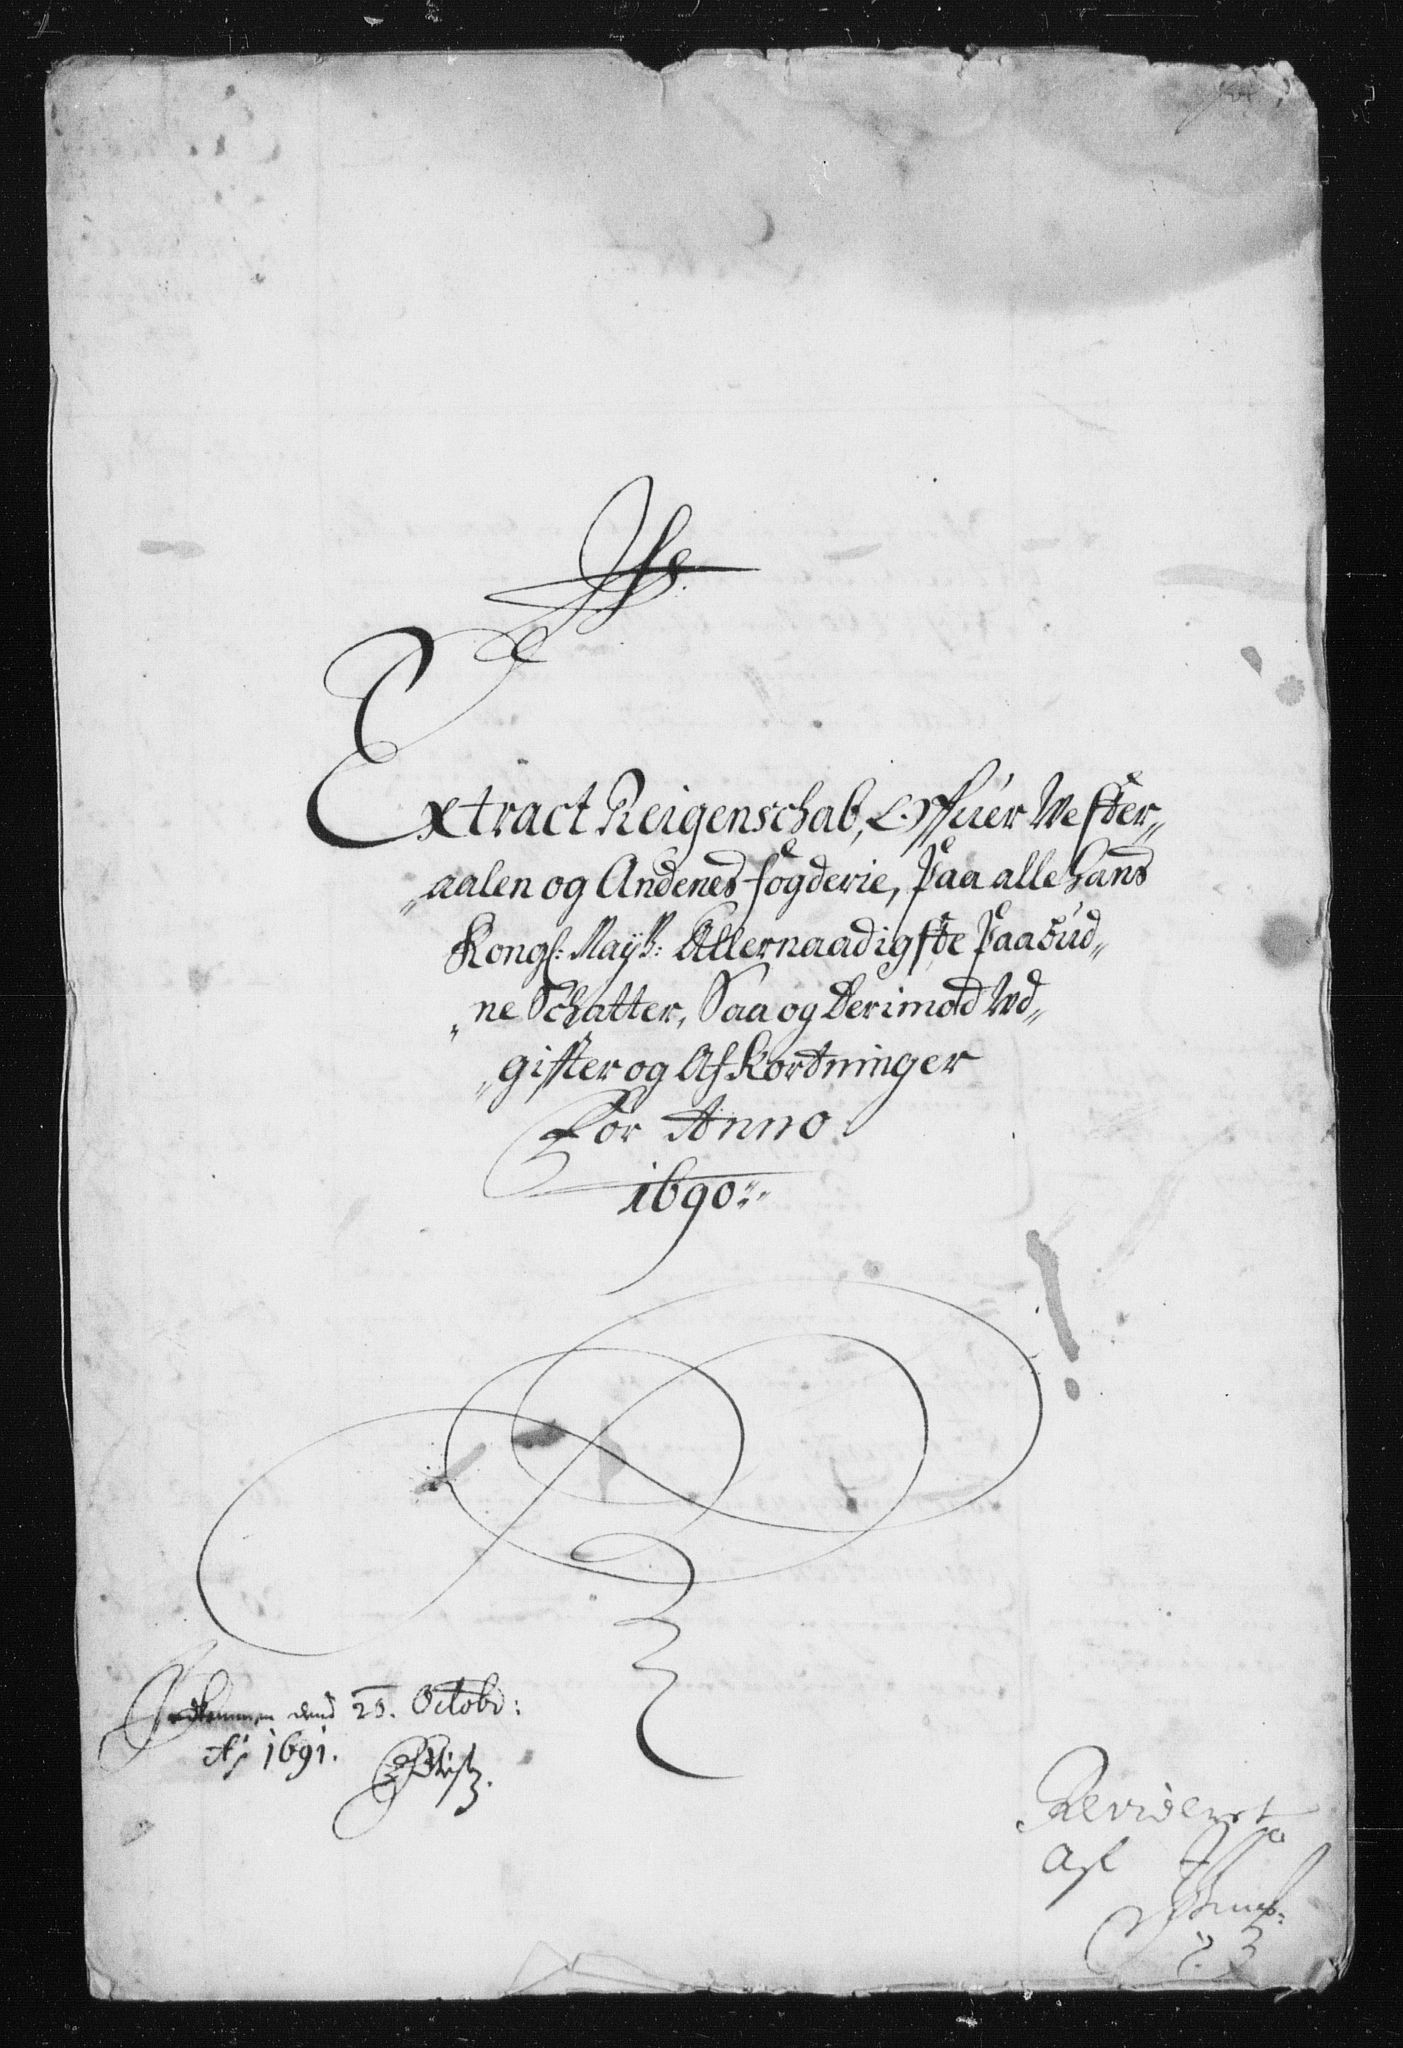 Extract Reigenschab, Offuer Wester„
„aalen og Andenes fogderie, Paa alle hans
Kongl: Mayts: Allernaadigste Paabud„
„ne Schatter, Saa og Derimod Wd„
„gifter og Afkortninger
For Anno
1690
Indkommen dend 23. Octobr:
Ao 1691.
Revideret
Af